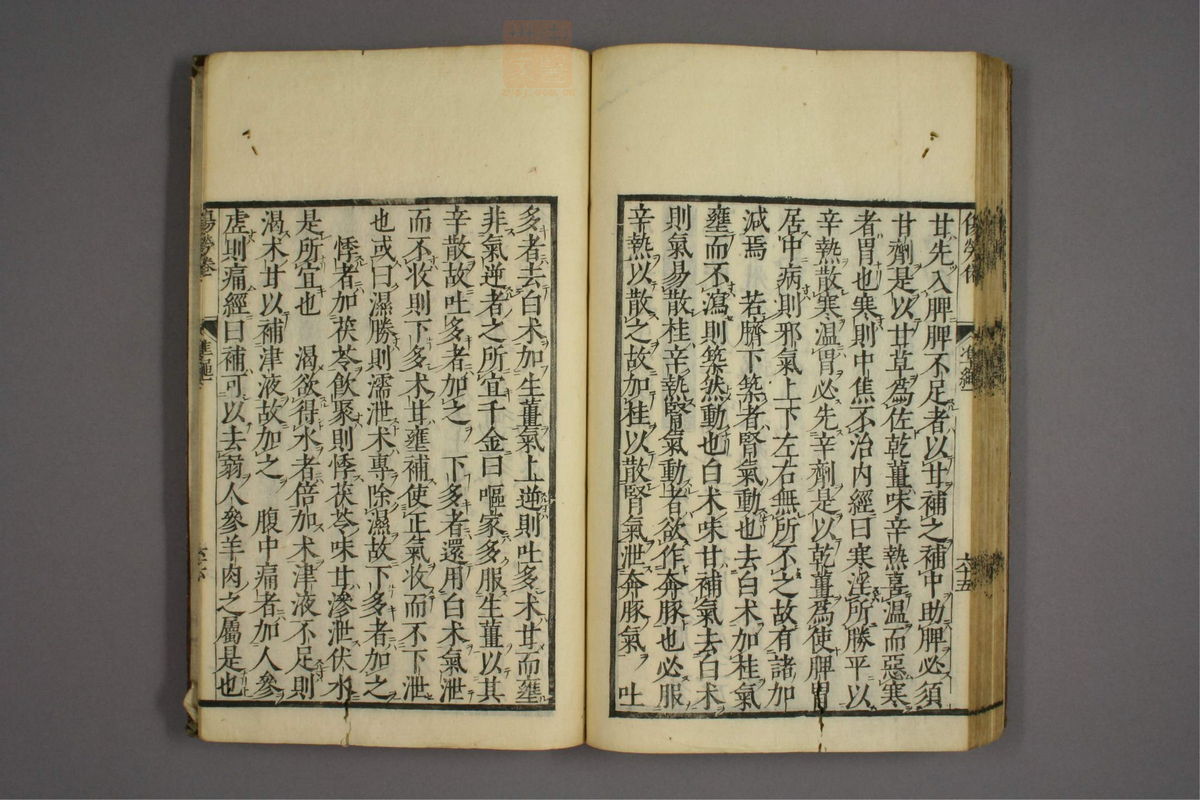 甘先入脾脾不足者以甘補之補中助脾必須
甘劑是以甘草爲佐乾薑味辛熱喜溫而惡寒
者胃也寒則中焦不治內經曰寒淫所勝平以
辛熱散寒溫胃必先辛劑是以乾薑爲使脾胃
居中病則邪氣上下左右無所不之故有諸加
減焉　若臍下築者腎氣動也去白术加桂氣
壅而不瀉則築然動也白术味甘補氣去白术
則氣易散桂辛熱腎氣動者欲作奔豚也必服
辛熱以散之故加桂以散腎氣泄奔豚氣　吐
多者去白术加生薑氣上逆則吐多术甘而壅
非氣逆者之所宜千金曰嘔家多服生薑以其
辛散故吐多者加之　下多者還用白术氣泄
而不收則下多术甘壅補使正氣收而不下泄
也或曰濕勝則濡泄术專除濕故下多者加之
悸者加茯苓飮聚則悸茯苓味甘滲泄伏水
是所宜也　渴欲得水者倍加术津液不足則
渴术甘以補津液故加之　腹中痛者加人參
虛則痛經曰補可以去弱人參羊肉之屬是也